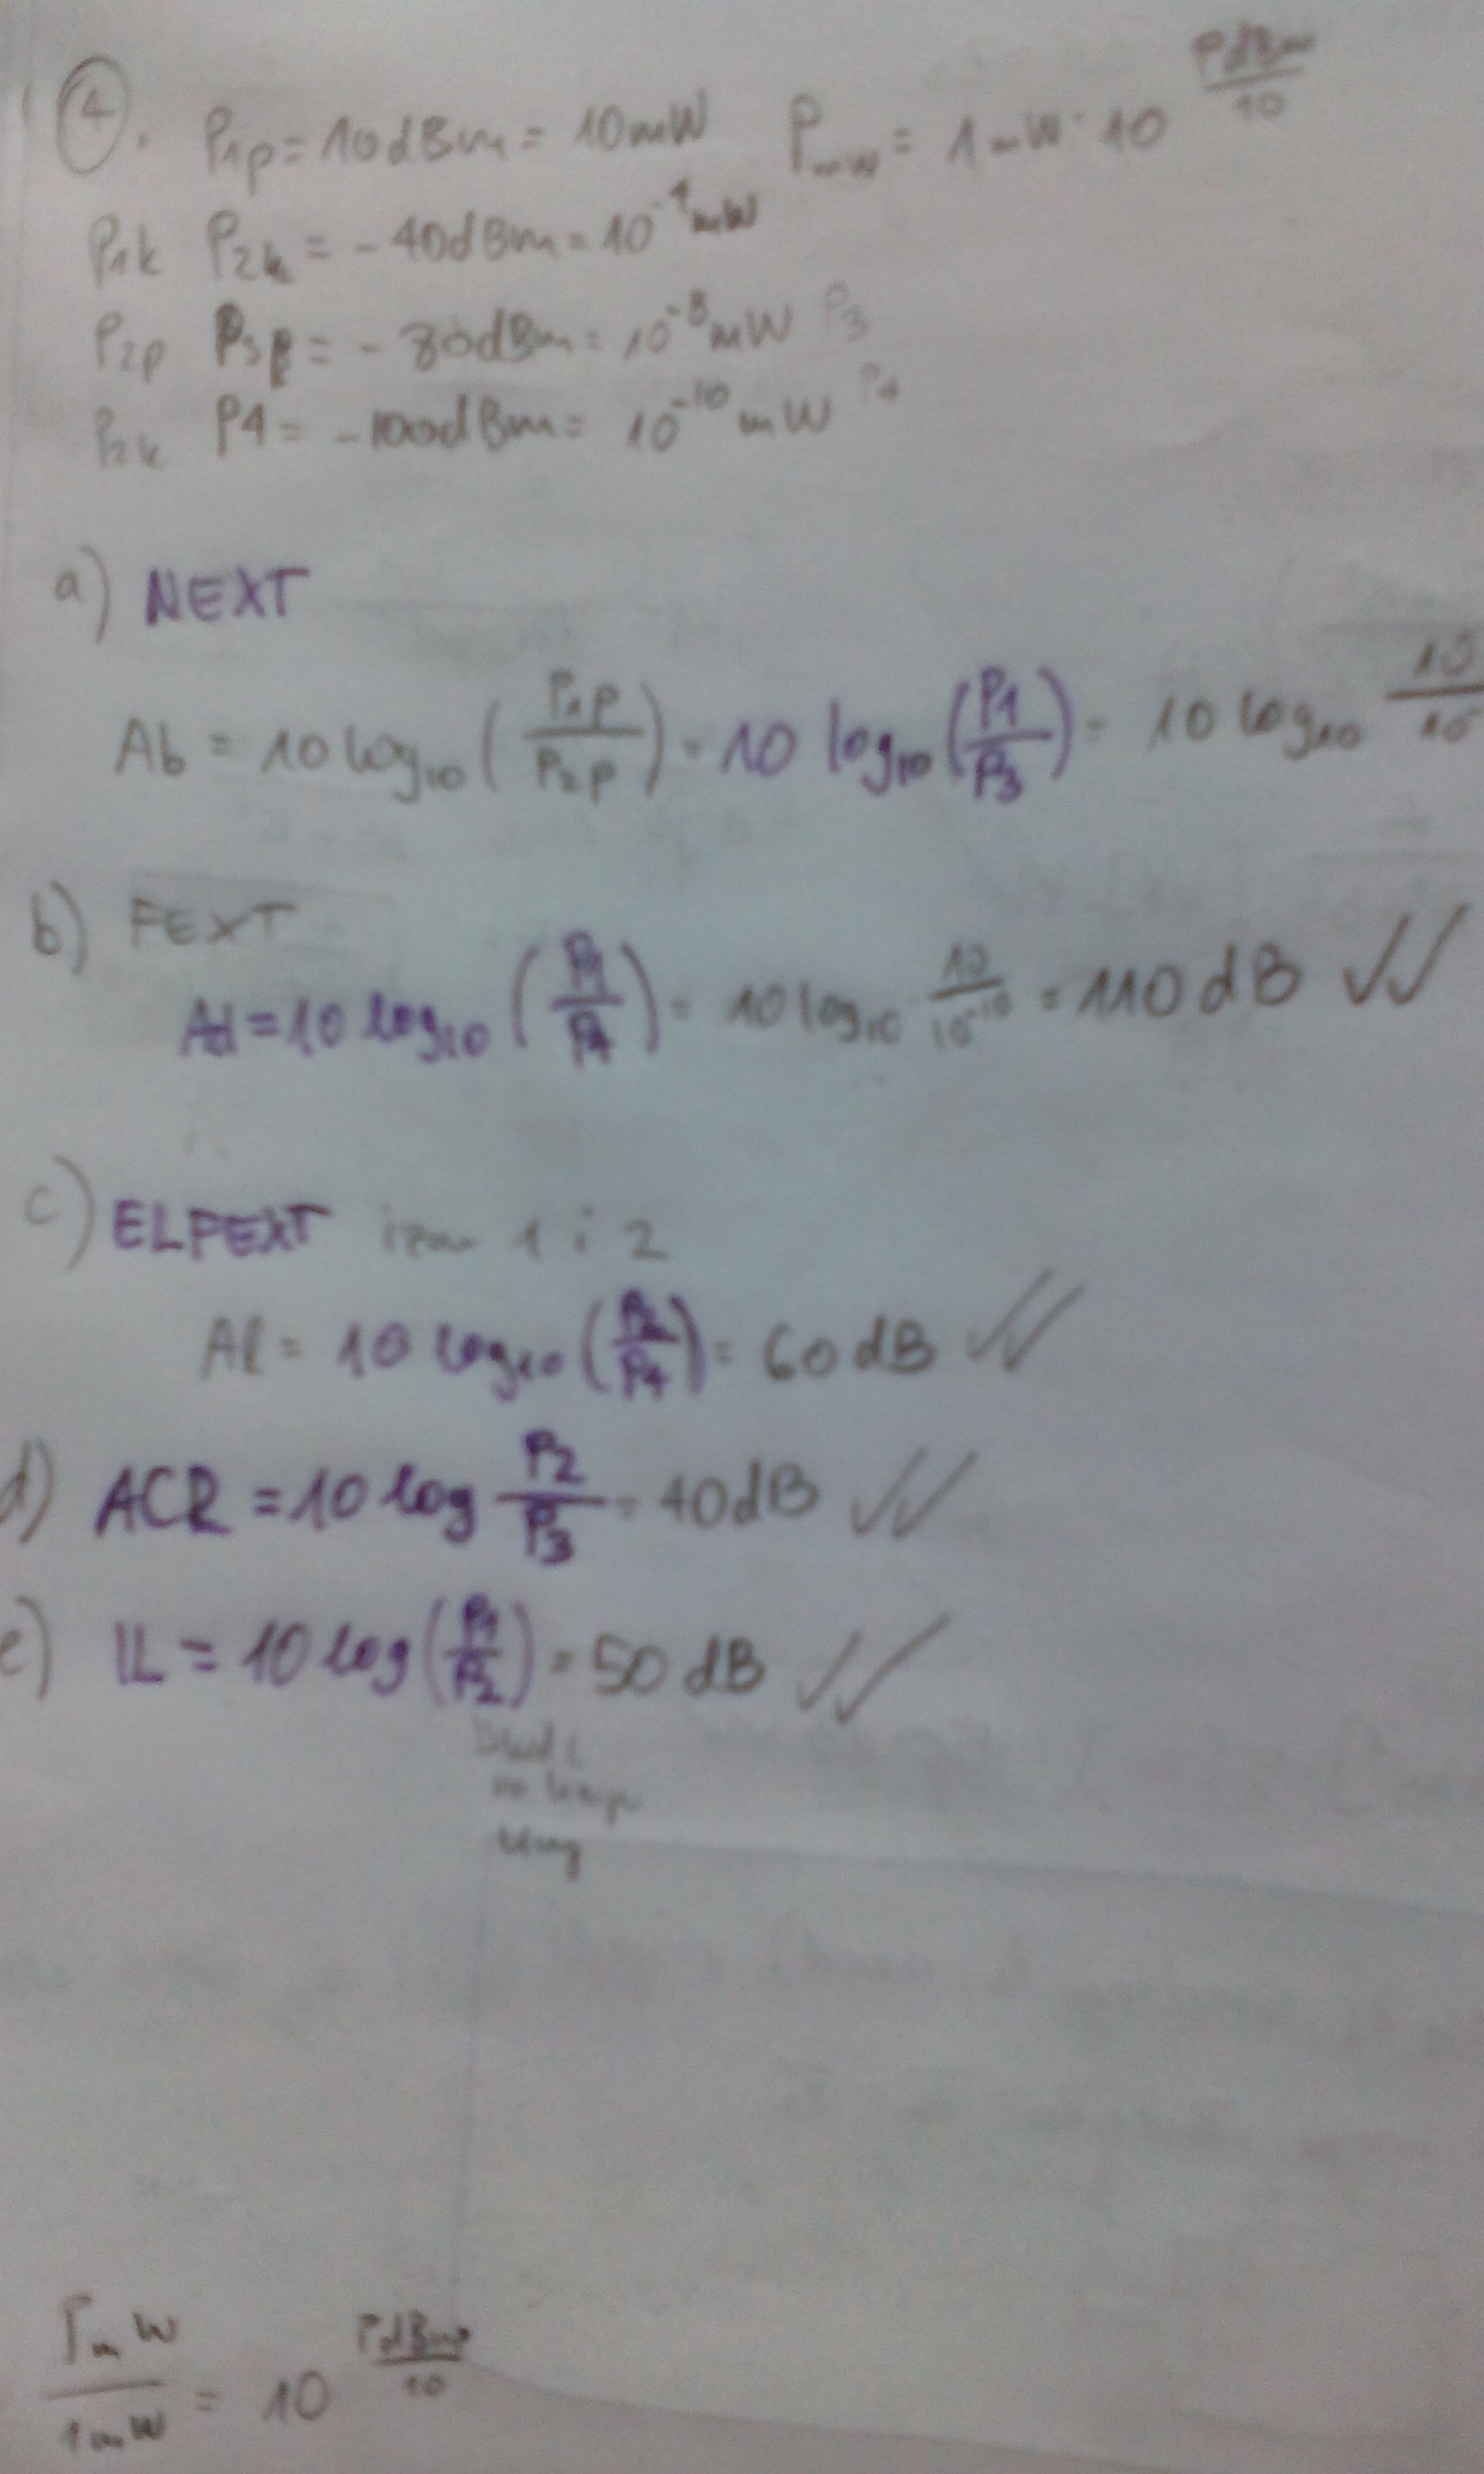 4. P1p = 10dBm = 10mW PmW = 1mW · 10^(PdBm/10)
P1k P2k = -40dBm = 10^-4 mW
P2p P3p = -80dBm = 10^-8 mW P3
P2k P4 = -100dBm = 10^-10 mW P4
a) NEXT
Ab = 10 log10 (P1p/P2p) = 10 log10 (P1/P3) = 10 log10 10/10
b) FEXT
Ad = 10 log10 (P1/P4) = 10 log10 10/10^-10 = 110 dB ✓✓
c) ELFEXT izm 1 i 2
Al = 10 log10 (P2/P4) = 60 dB ✓✓
d) ACR = 10 log P2/P3 = 40dB ✓✓
e) IL = 10 log (P1/P2) = 50 dB ✓✓
PmW/1mW = 10^(PdBm/10)